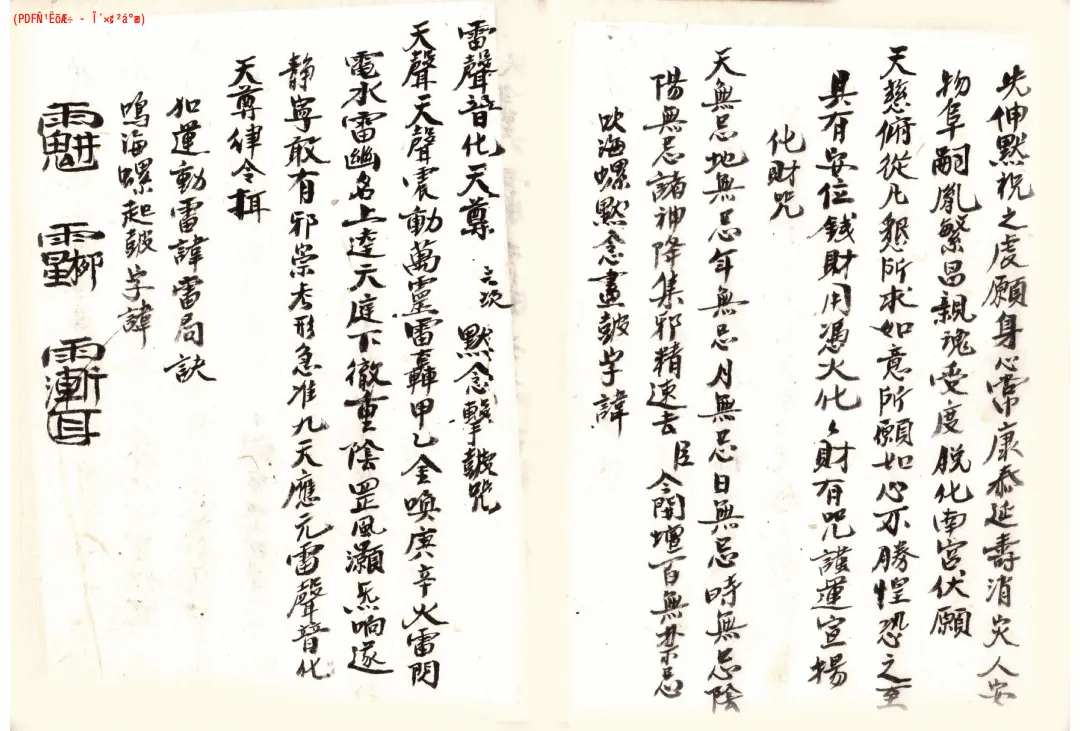 (PDFÑ¹ËõÆ÷ - Î´×¢²á°æ)
先伸默祝之虔願身心常康泰延壽消災人安
物阜嗣胤繁昌親魂受度脱化南宮伏願
天慈俯從凡懇所求如意所願如心不勝惶恐之至
具有安位錢財用憑火化〻財有咒謹運宣揚
化財咒
天無忌地無忌年無忌月無忌日無忌時無忌陰
陽無忌諸神降集邪精速去臣今開壇百無禁忌
吹海螺默念畫皷字諱
雷聲普化天尊 三次 默念擊皷咒
天聲天聲震動萬靈雷轟甲乙金喚庚辛火雷閃
電水雷幽名上達天庭下徹重陰罡風灝炁响遂
静寧敢有邪祟考形急准九天應元雷聲普化
天尊律令揖
如運動雷諱雷局訣
鳴海螺起皷字諱